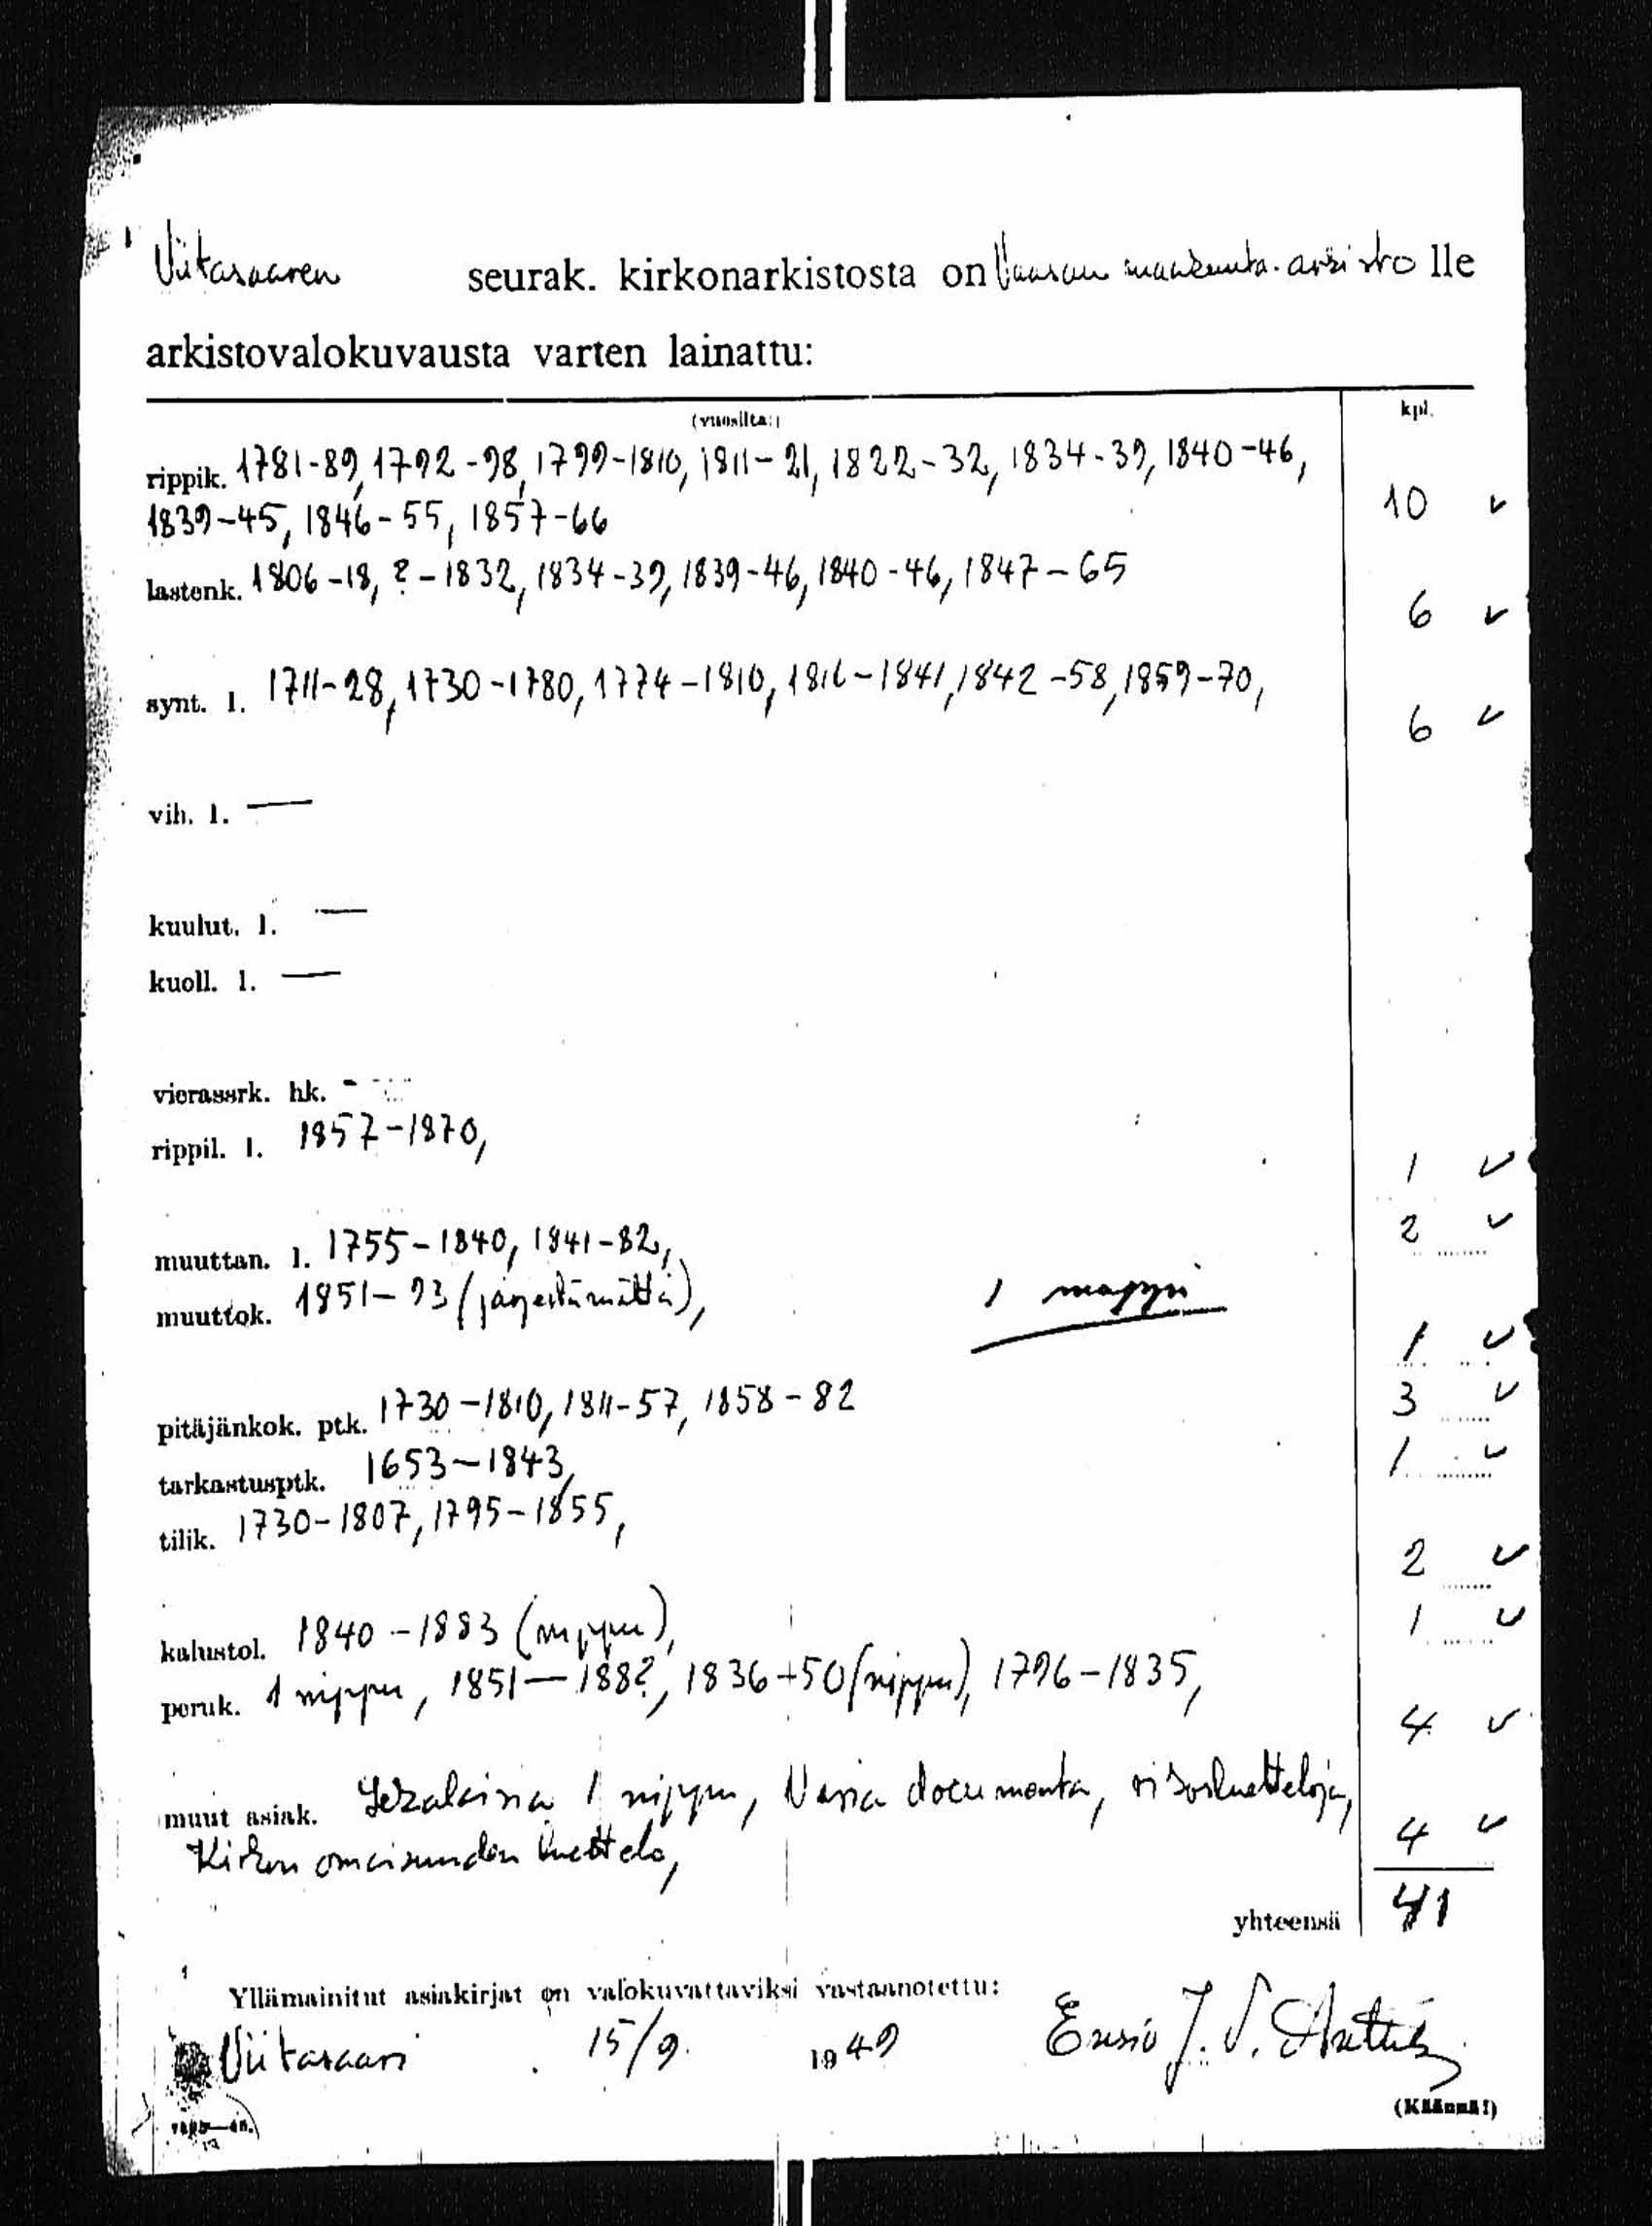 Viitasaaren seurak. kirkonarkistosta on Vaasan maakunta-arkisto lle
arkistovalokuvausta varten lainattu:
(vuosilta:) kpl.
rippik. 1781-89, 1792-98, 1799-1810, 1811-21, 1822-32, 1834-39, 1840-46,
1839-45, 1846-55, 1857-66 10 ✓
lastenk. 1806-18, ?-1832, 1834-39, 1839-46, 1840-46, 1847-65
6 ✓
synt. l. 1711-28, 1730-1780, 1774-1810, 1816-1841, 1842-58, 1859-70,
6 ✓
vih. l. —
kuulut. l. —
kuoll. l. —
vierassrk. hk. -
rippil. l. 1857-1870,
1 ✓
muuttan. l. 1755-1840, 1841-82, 2 ✓
muuttok. 1851-93 (järjestämättä), 1 mappi
1 ✓
pitäjänkok. ptk. 1730-1810, 1811-57, 1858-82 3 ✓
tarkastusptk. 1653-1843, 1 ✓
tilik. 1730-1807, 1795-1855,
2 ✓
kalustol. 1840-1883 (nippu), 1 ✓
peruk. 1 nippu, 1851-188?, 1836+50 (nippu), 1796-1835,
4 ✓
muut asiak. Sekalaisia 1 nippu, Varia documenta,
Kirkon omaisuuden luettelo, 4 ✓
yhteensä 41
Yllämainitut asiakirjat on valokuvattaviksi vastaanotettu:
Viitasaari 15/9. 1949 Ensio J. V.
(Käännä!)